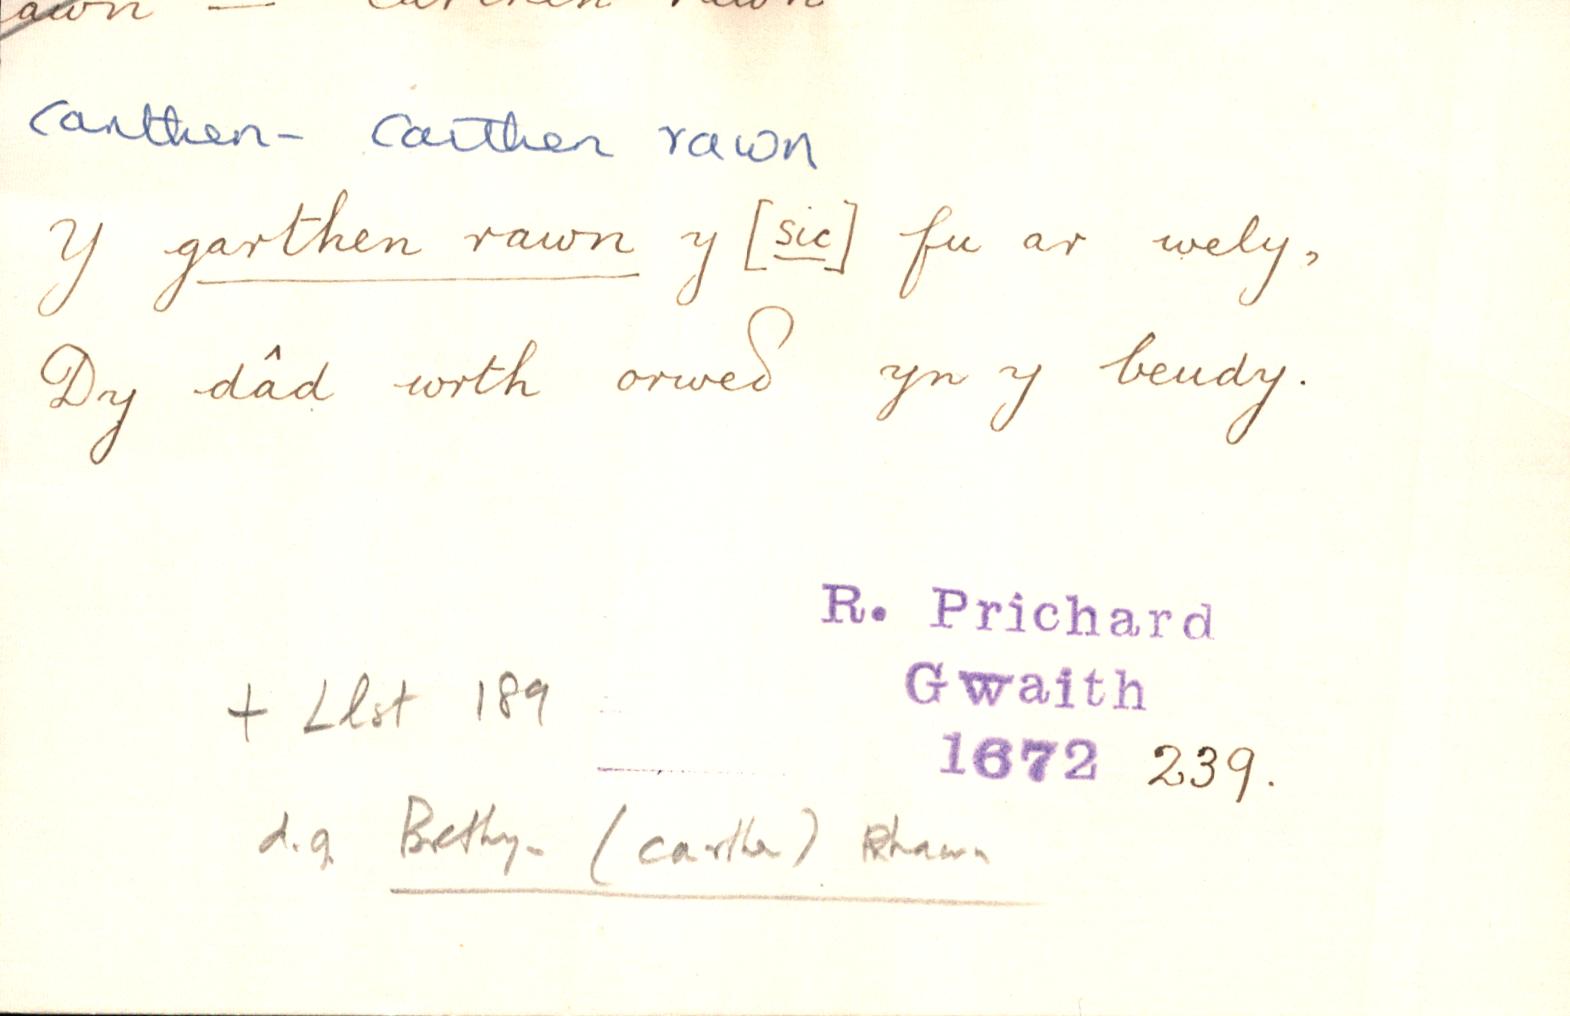 rawn — carthen rawn
carthen - carthen rawn
Y garthen rawn y [sic] fu ar wely,
Dy dâd wrth orweδ yn y beudy.
R. Prichard
Gwaith
1672 239.
+ Llst 189
d.g. (carthen) Rhawn